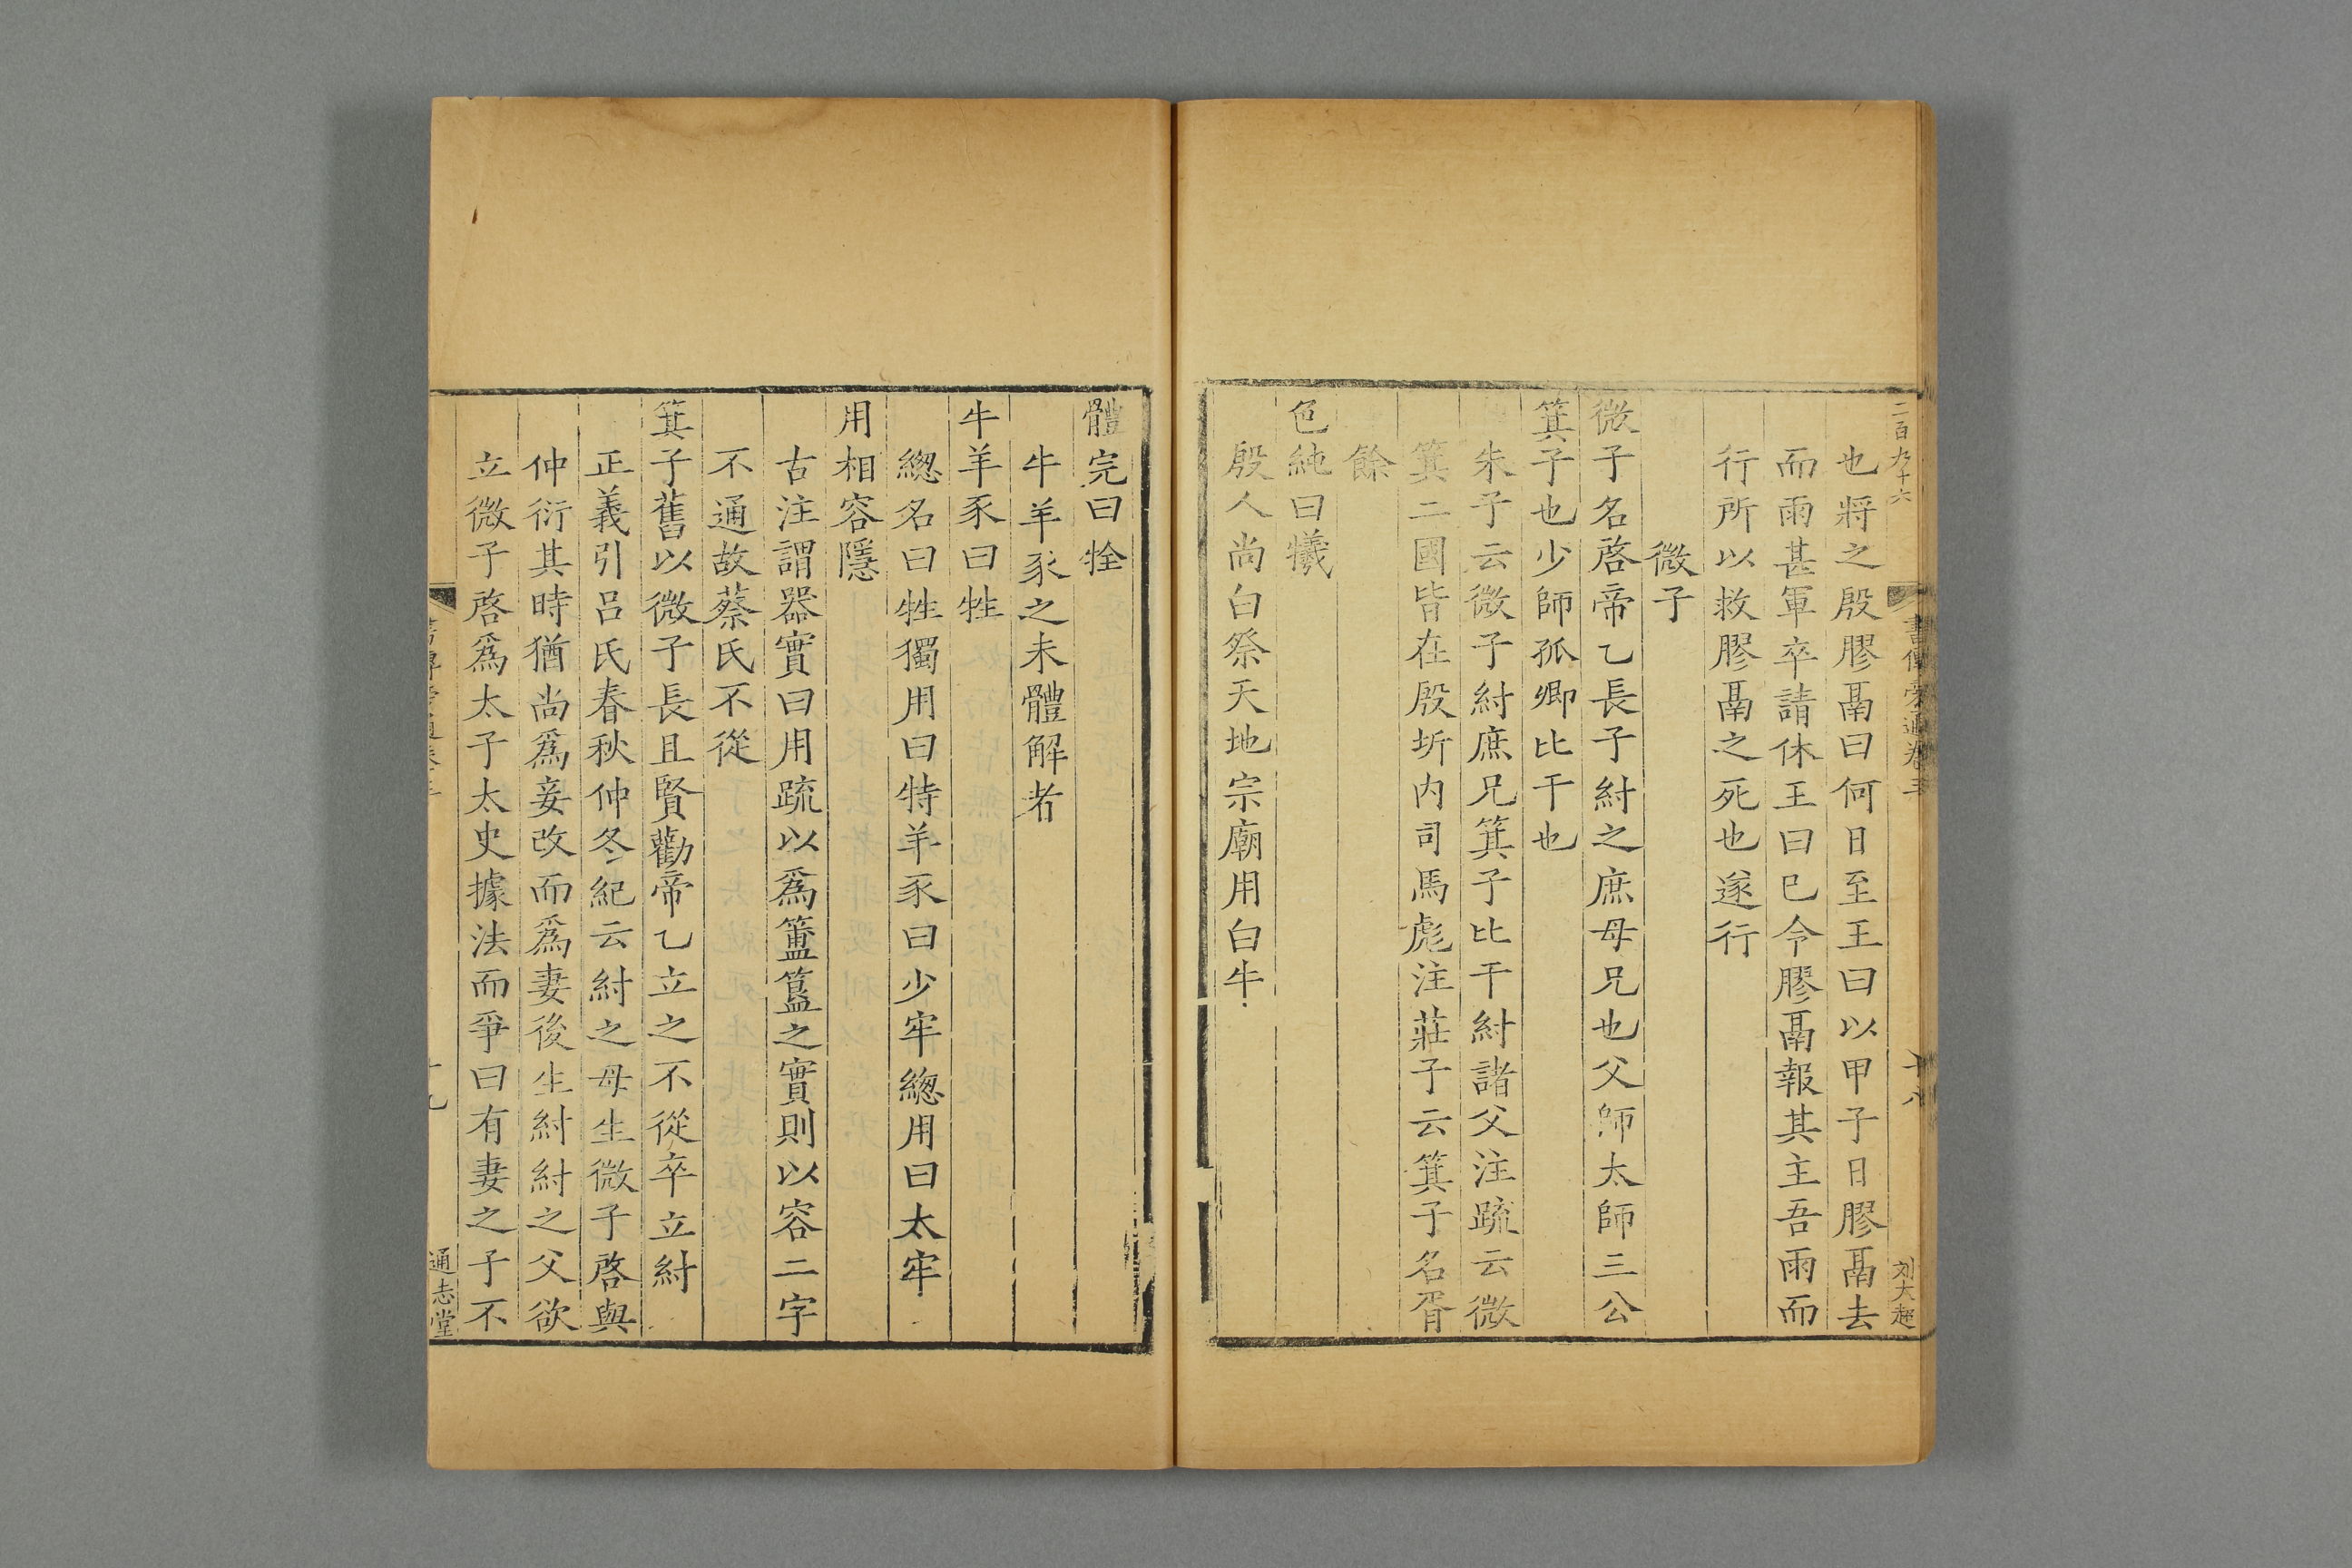 二百九十六
刘大趣
書傳旁通卷三
十八
也將之殷膠鬲曰何日至王曰以甲子日膠鬲去
而雨甚軍卒請休王曰巳令膠鬲報其主吾雨而
行所以救膠鬲之死也遂行
微子
微子名啓帝乙長子紂之庶母兄也父師太師三公
箕子也少師孤卿比干也
朱子云微子紂庶兄箕子比干紂諸父注疏云微
箕二國皆在殷圻内司馬彪注莊子云箕子名胥
餘
色純曰犧
殷人尚白祭天地宗廟用白牛
體完曰牷
牛羊豕之未體解者
牛羊豕曰牲
總名曰牲獨用曰特羊豕曰少牢總用曰太牢
用相容隱
古注謂器實曰用疏以爲簠簋之實則以容二字
不通故蔡氏不從
箕子舊以微子長且賢勸帝乙立之不從卒立紂
正義引呂氏春秋仲冬紀云紂之母生微子啓與
仲衍其時猶尚爲妾改而爲妻後生紂紂之父欲
立微子啓爲太子太史據法而爭曰有妻之子不
通志堂